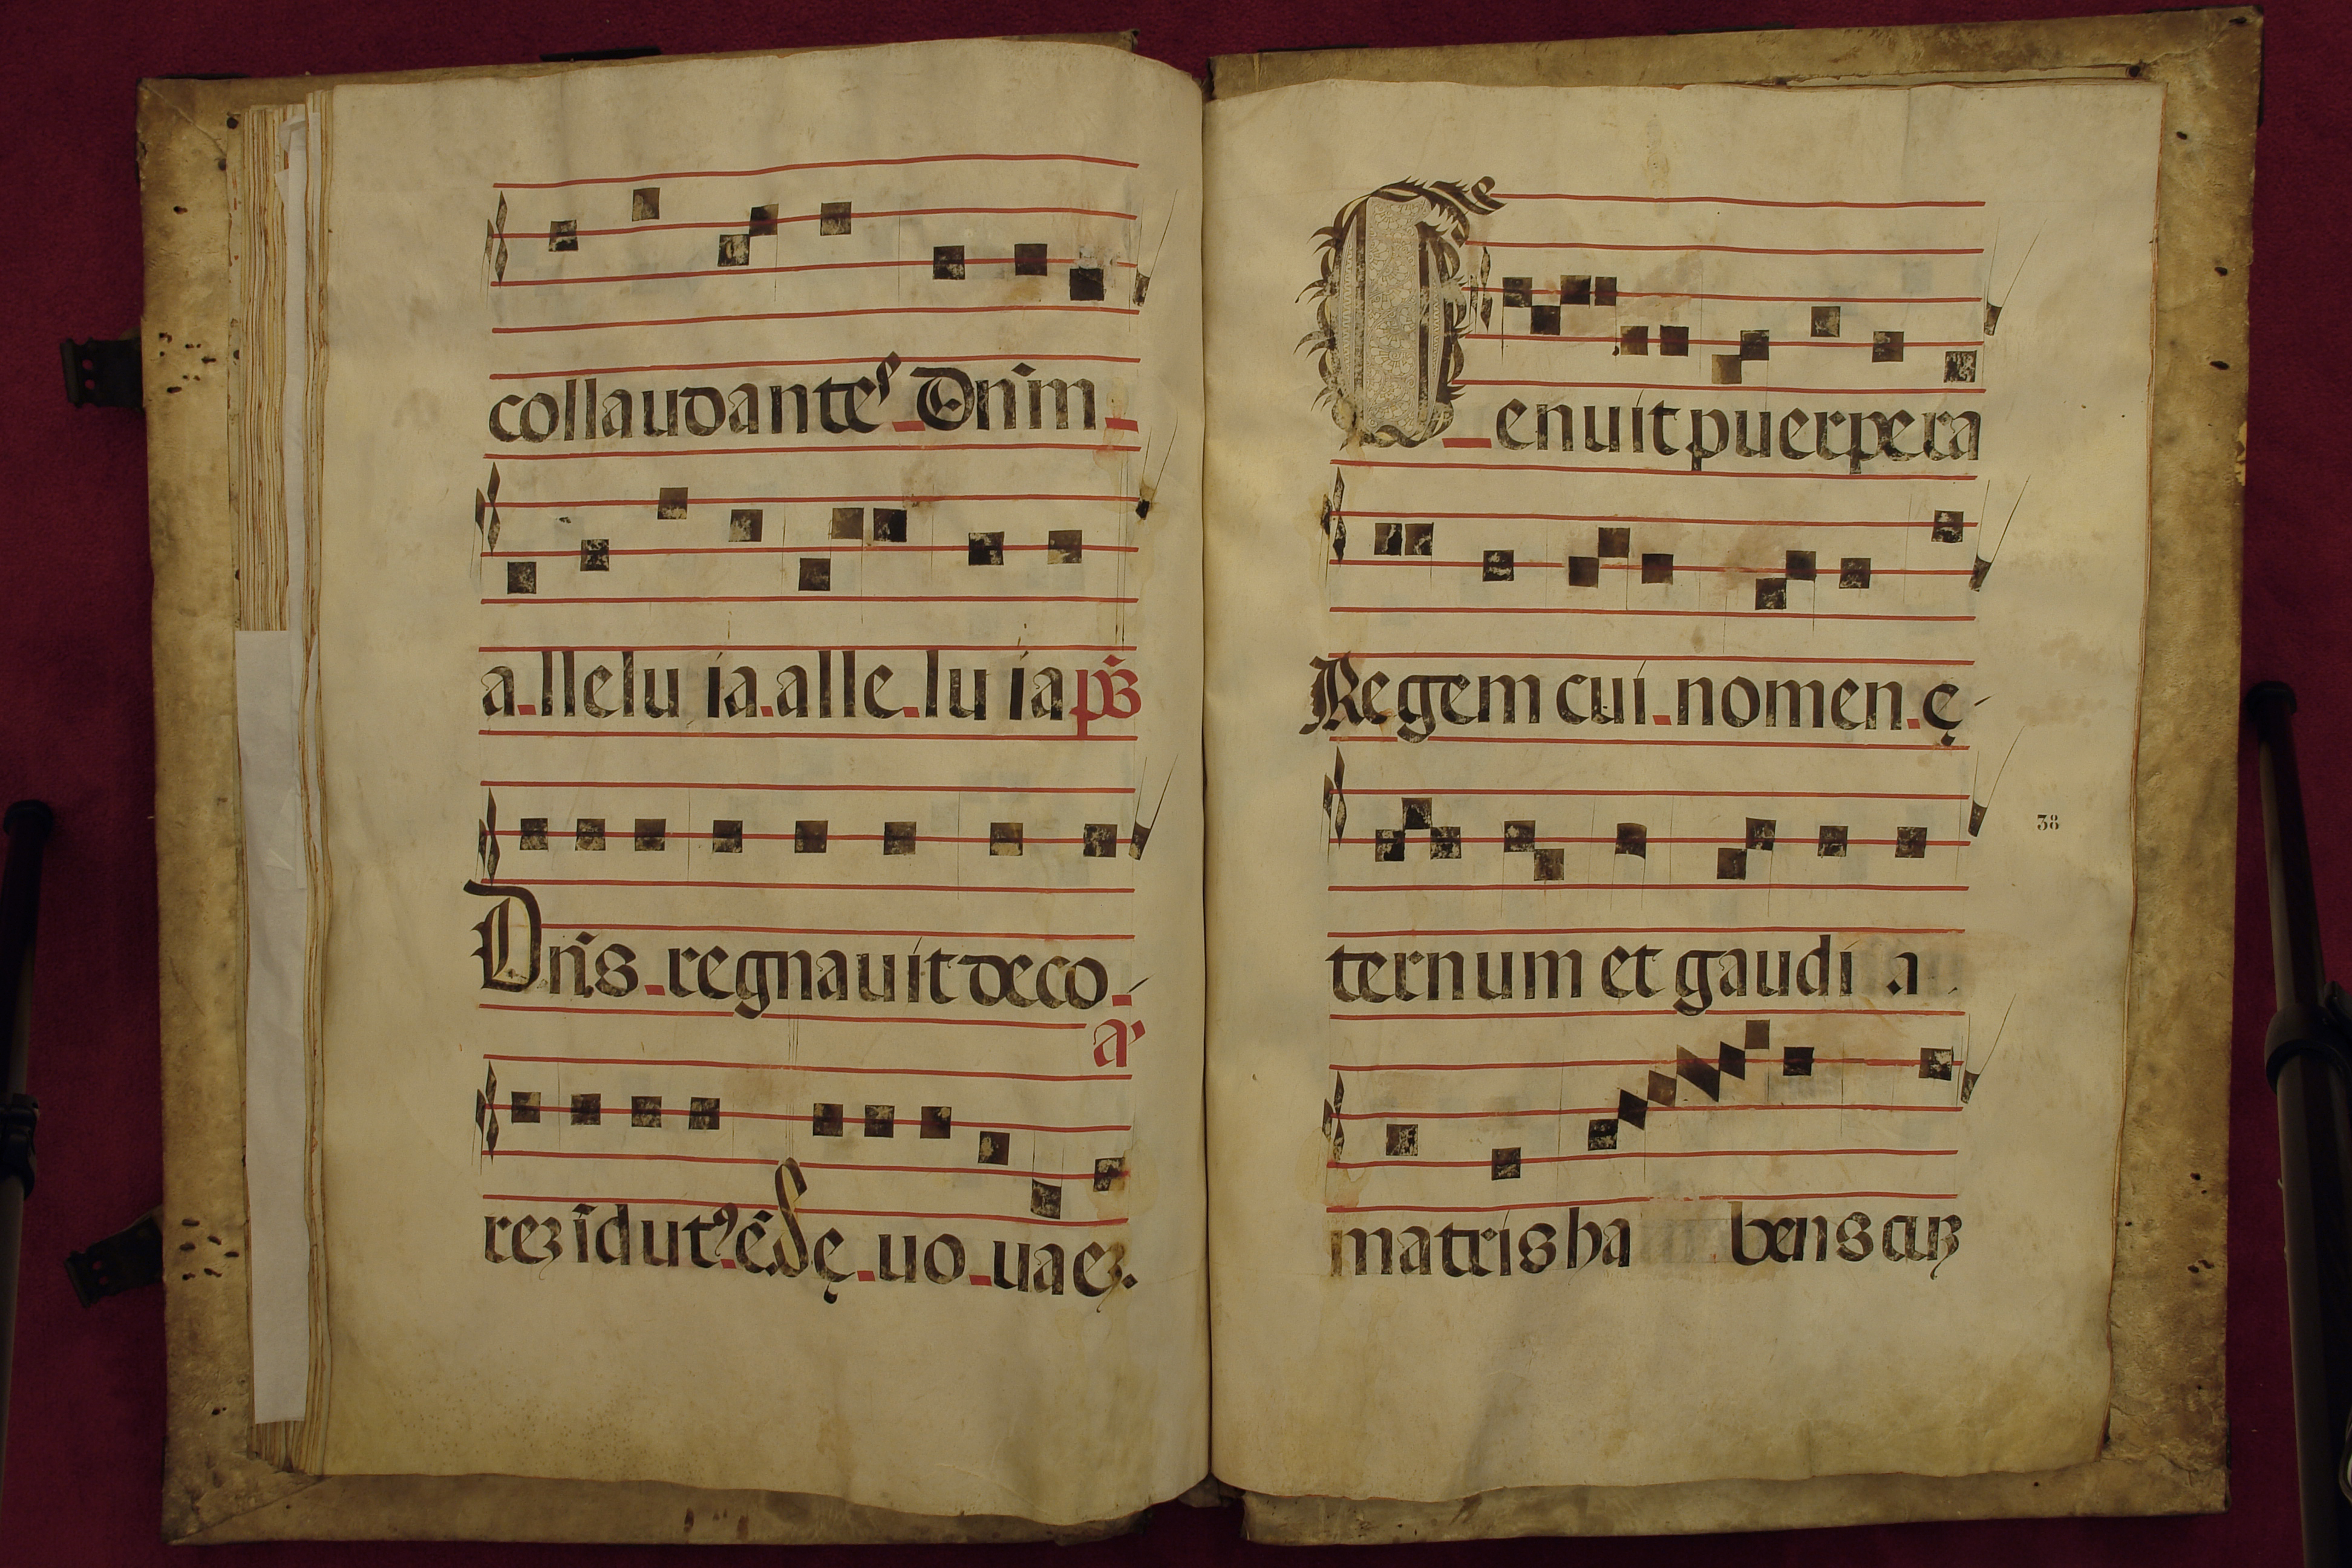 collaudantes Dñm
a llelu ia. alle lu ia ps̄
Dñs regnauit deco
aᷣ
rez idut⁹ ē Sę uo uaez.
Genuit puerpera
Regem cui nomen ę
38
ternum et gaudi a
matris ha bens cuz